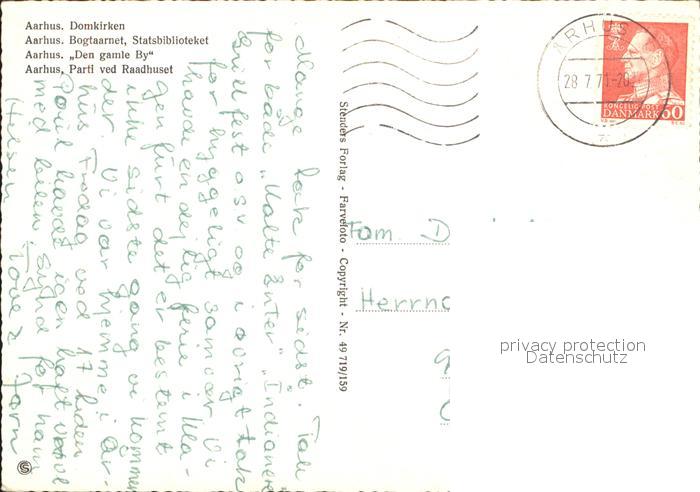 Aarhus. Domkirken
Aarhus. Bogtaarnet, Statsbiblioteket
Aarhus. „Den gamle By“
Aarhus, Parti ved Raadhuset
Mange tak for sidst. Tak
for både „Malte 
 fest osv og i øvrigt tak
for hyggeligt samvær. Vi
havde en dejlig ferie i 
gen fürt det er bestemt
ikke sidste gang vi kommer
der. Vi var hjemme i År-
hus Fredag ved 17 tiden
Poul havde igen haft 
med bilen. 
Hilsen Tove &
Stenders Forlag - Farvefoto - Copyright - Nr. 49 719/159
ÅRHUS
28.7.71-20
KONGELIG POST
DANMARK 60
Fam. D
Herrn
privacy protection
Datenschutz